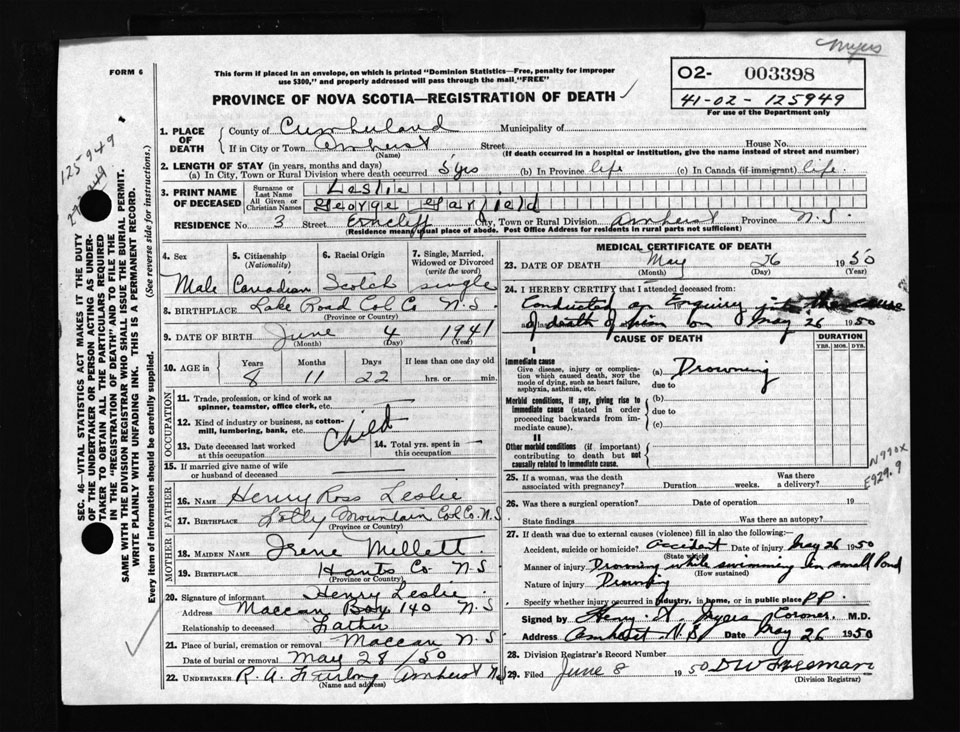 Myers
FORM 6
This form if placed in an envelope, on which is printed "Dominion Statistics—Free, penalty for improper
use $300," and properly addressed will pass through the mail "FREE"
PROVINCE OF NOVA SCOTIA—REGISTRATION OF DEATH ✓
O2- 003398
41-02-125949
For use of the Department only
125949
SEC. 46—VITAL STATISTICS ACT MAKES IT THE DUTY
OF THE UNDERTAKER OR PERSON ACTING AS UNDER-
TAKER TO OBTAIN ALL THE PARTICULARS REQUIRED
IN THE "REGISTRATION OF DEATH" AND TO FILE THE
SAME WITH THE DIVISION REGISTRAR WHO SHALL ISSUE THE BURIAL PERMIT.
WRITE PLAINLY WITH UNFADING INK. THIS IS A PERMANENT RECORD.
Every item of information should be carefully supplied. (See reverse side for instructions.)
1. PLACE OF DEATH County of Cumberland Municipality of
If in City or Town Amherst Street House No.
(Name) (If death occurred in a hospital or institution, give the name instead of street and number)
2. LENGTH OF STAY (in years, months and days)
(a) In City, Town or Rural Division where death occurred 5 yrs (b) In Province life (c) In Canada (if immigrant) life.
3. PRINT NAME OF DECEASED Surname or Last Name Leslie
All Given or Christian Names George Garfield
RESIDENCE No. 3 Street City, Town or Rural Division Amherst Province N.S.
(Residence means usual place of abode. Post Office Address for residents in rural parts not sufficient)
4. Sex 5. Citizenship (Nationality) 6. Racial Origin 7. Single, Married, Widowed or Divorced (write the word)
Male Canadian Scotch single
8. BIRTHPLACE Lake Road Col. Co N.S.
(Province or Country)
9. DATE OF BIRTH June 4 1941
(Month) (Day) (Year)
10. AGE in Years Months Days If less than one day old
8 11 22 hrs. or min.
OCCUPATION
11. Trade, profession, or kind of work as
spinner, teamster, office clerk, etc.
12. Kind of industry or business, as cotton-
mill, lumbering, bank, etc. Child
13. Date deceased last worked
at this occupation
14. Total yrs. spent in
this occupation
15. If married give name of wife
or husband of deceased
FATHER
16. NAME Henry Ross Leslie
17. BIRTHPLACE Mountain Col. Co. N.S
(Province or Country)
MOTHER
18. MAIDEN NAME Irene Millett
19. BIRTHPLACE Hants Co N S
(Province or Country)
20. Signature of informant Henry Leslie
Address Maccan Box 140 N.S
Relationship to deceased Father
21. Place of burial, cremation or removal Maccan N.S
Date of burial or removal May 28 '50
22. UNDERTAKER R. A. Amherst N.S
(Name and address)
MEDICAL CERTIFICATE OF DEATH
23. DATE OF DEATH May 26 1950
(Month) (Day) (Year)
24. I HEREBY CERTIFY that I attended deceased from:
Conducted an Enquiry into the cause
of death of him on May 26 1950
CAUSE OF DEATH DURATION
YRS. MOS. DYS.
I
Immediate cause
Give disease, injury or complica-
tion which caused death, NOT the
mode of dying, such as heart failure,
asphyxia, asthenia, etc.
(a) Drowning
due to
Morbid conditions, if any, giving rise to
immediate cause (stated in order
proceeding backwards from im-
mediate cause).
(b)
due to
(c)
II
Other morbid conditions (if important)
contributing to death but not
causally related to immediate cause.
N990X
E929.9
25. If a woman, was the death
associated with pregnancy? Duration weeks. Was there
a delivery?
26. Was there a surgical operation? Date of operation 19
State findings Was there an autopsy?
27. If death was due to external causes (violence) fill in also the following:
Accident, suicide or homicide? Accident Date of injury May 26 1950
(State which)
Manner of injury Drowning while swimming in small Pond
(How sustained)
Nature of injury Drowning
Specify whether injury occurred in industry, in home, or in public place PP.
Signed by Henry Coroner M.D.
Address Amherst N.S Date May 26 1950
28. Division Registrar's Record Number
29. Filed June 8 1950 DW Freeman
(Division Registrar)